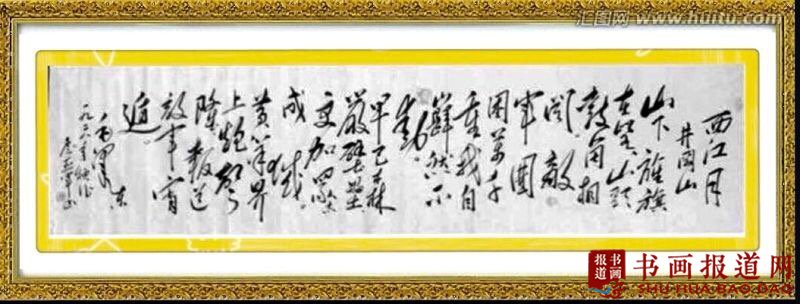 西江月
井冈山
山下旌旗
在望山头
鼓角相
闻敌
军围
困万千
重我自
岿然不
动
早已森
严壁垒
更加众志
成城
黄洋界
上炮声
隆报道
敌军宵
遁
毛泽东
汇图网
www.huitu.com
书画
报道
书画报道网
SHU HUA BAO DAO